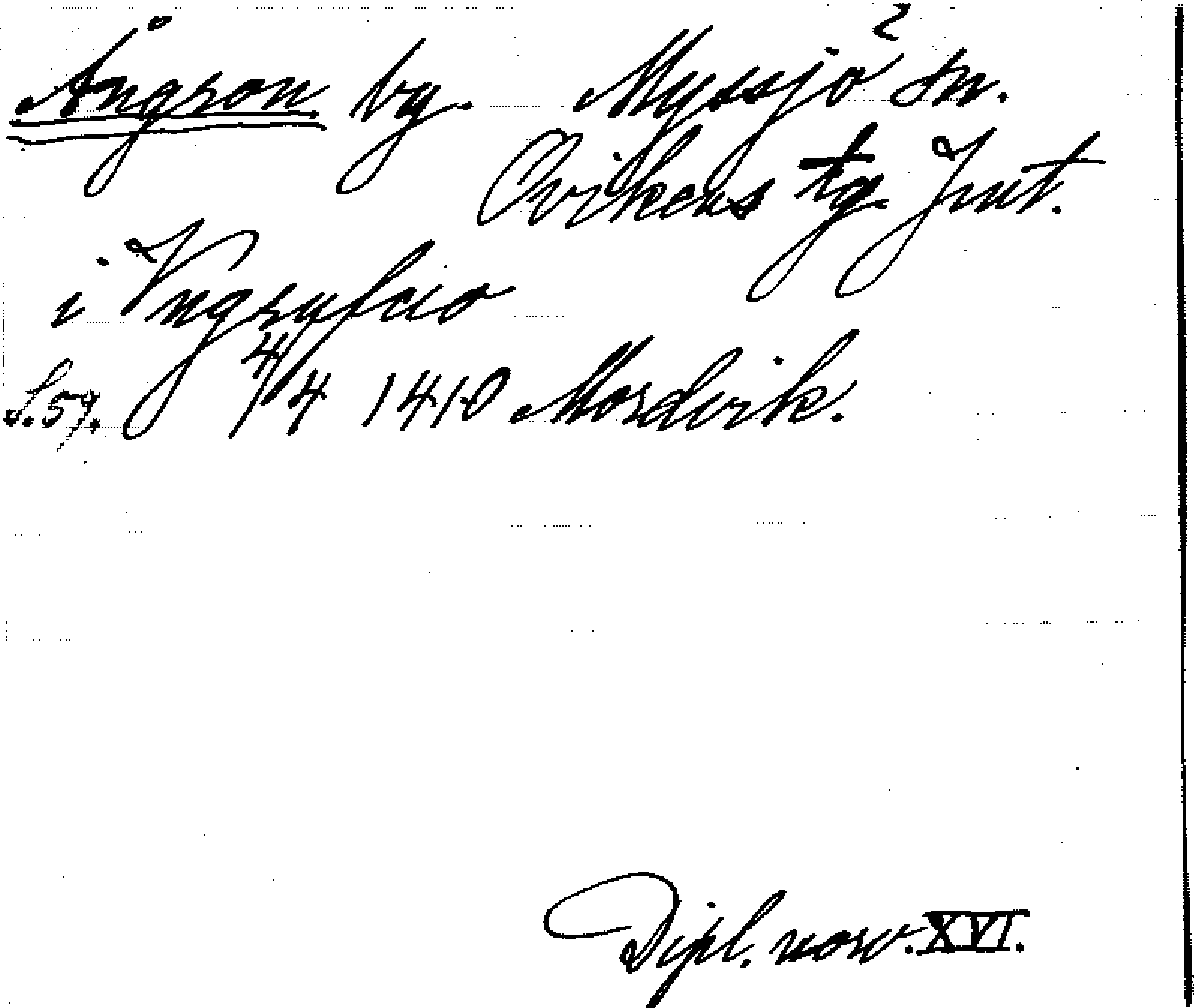 2
Ångron by. Myssjö sn.
Ovikens tg Jmt.
i Vngrufuo
S. 59. 4/4 1410 Mordvik.
Dipl. norv. XVI.